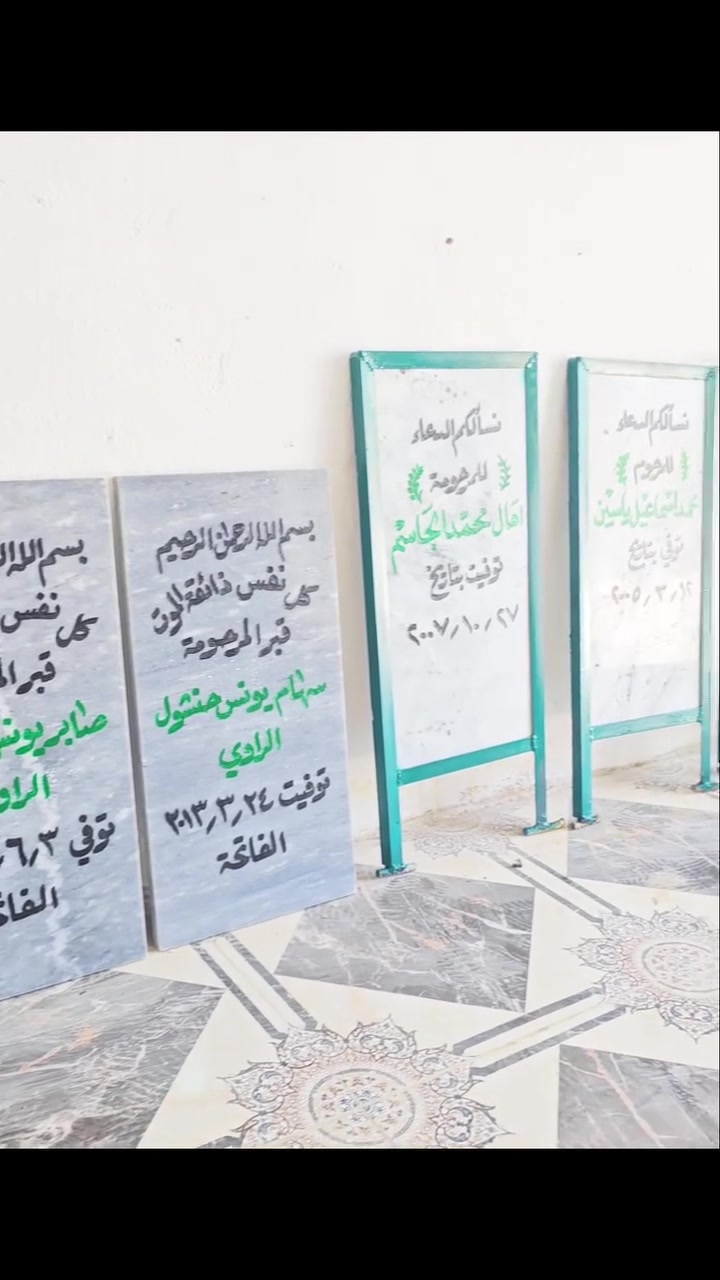 نسألكم الدعاء
للمرحوم
محمد اسماعيل ياسين
توفي بتاريخ
٢٠٠٥/٣/١٢
نسألكم الدعاء
للمرحومة
امال محمد الجاسم
توفيت بتاريخ
٢٠٠٧/١٠/٢٧
بسم الله الرحمن الرحيم
كل نفس ذائقة الموت
قبر المرحومة
سهام يونس حنشول
الراوي
توفيت ٢٠١٣/٣/٢٤
الفاتحة
بسم الله
كل نفس
قبر
صابر يونس
الراوي
توفي ٦/٣
الفاتحة